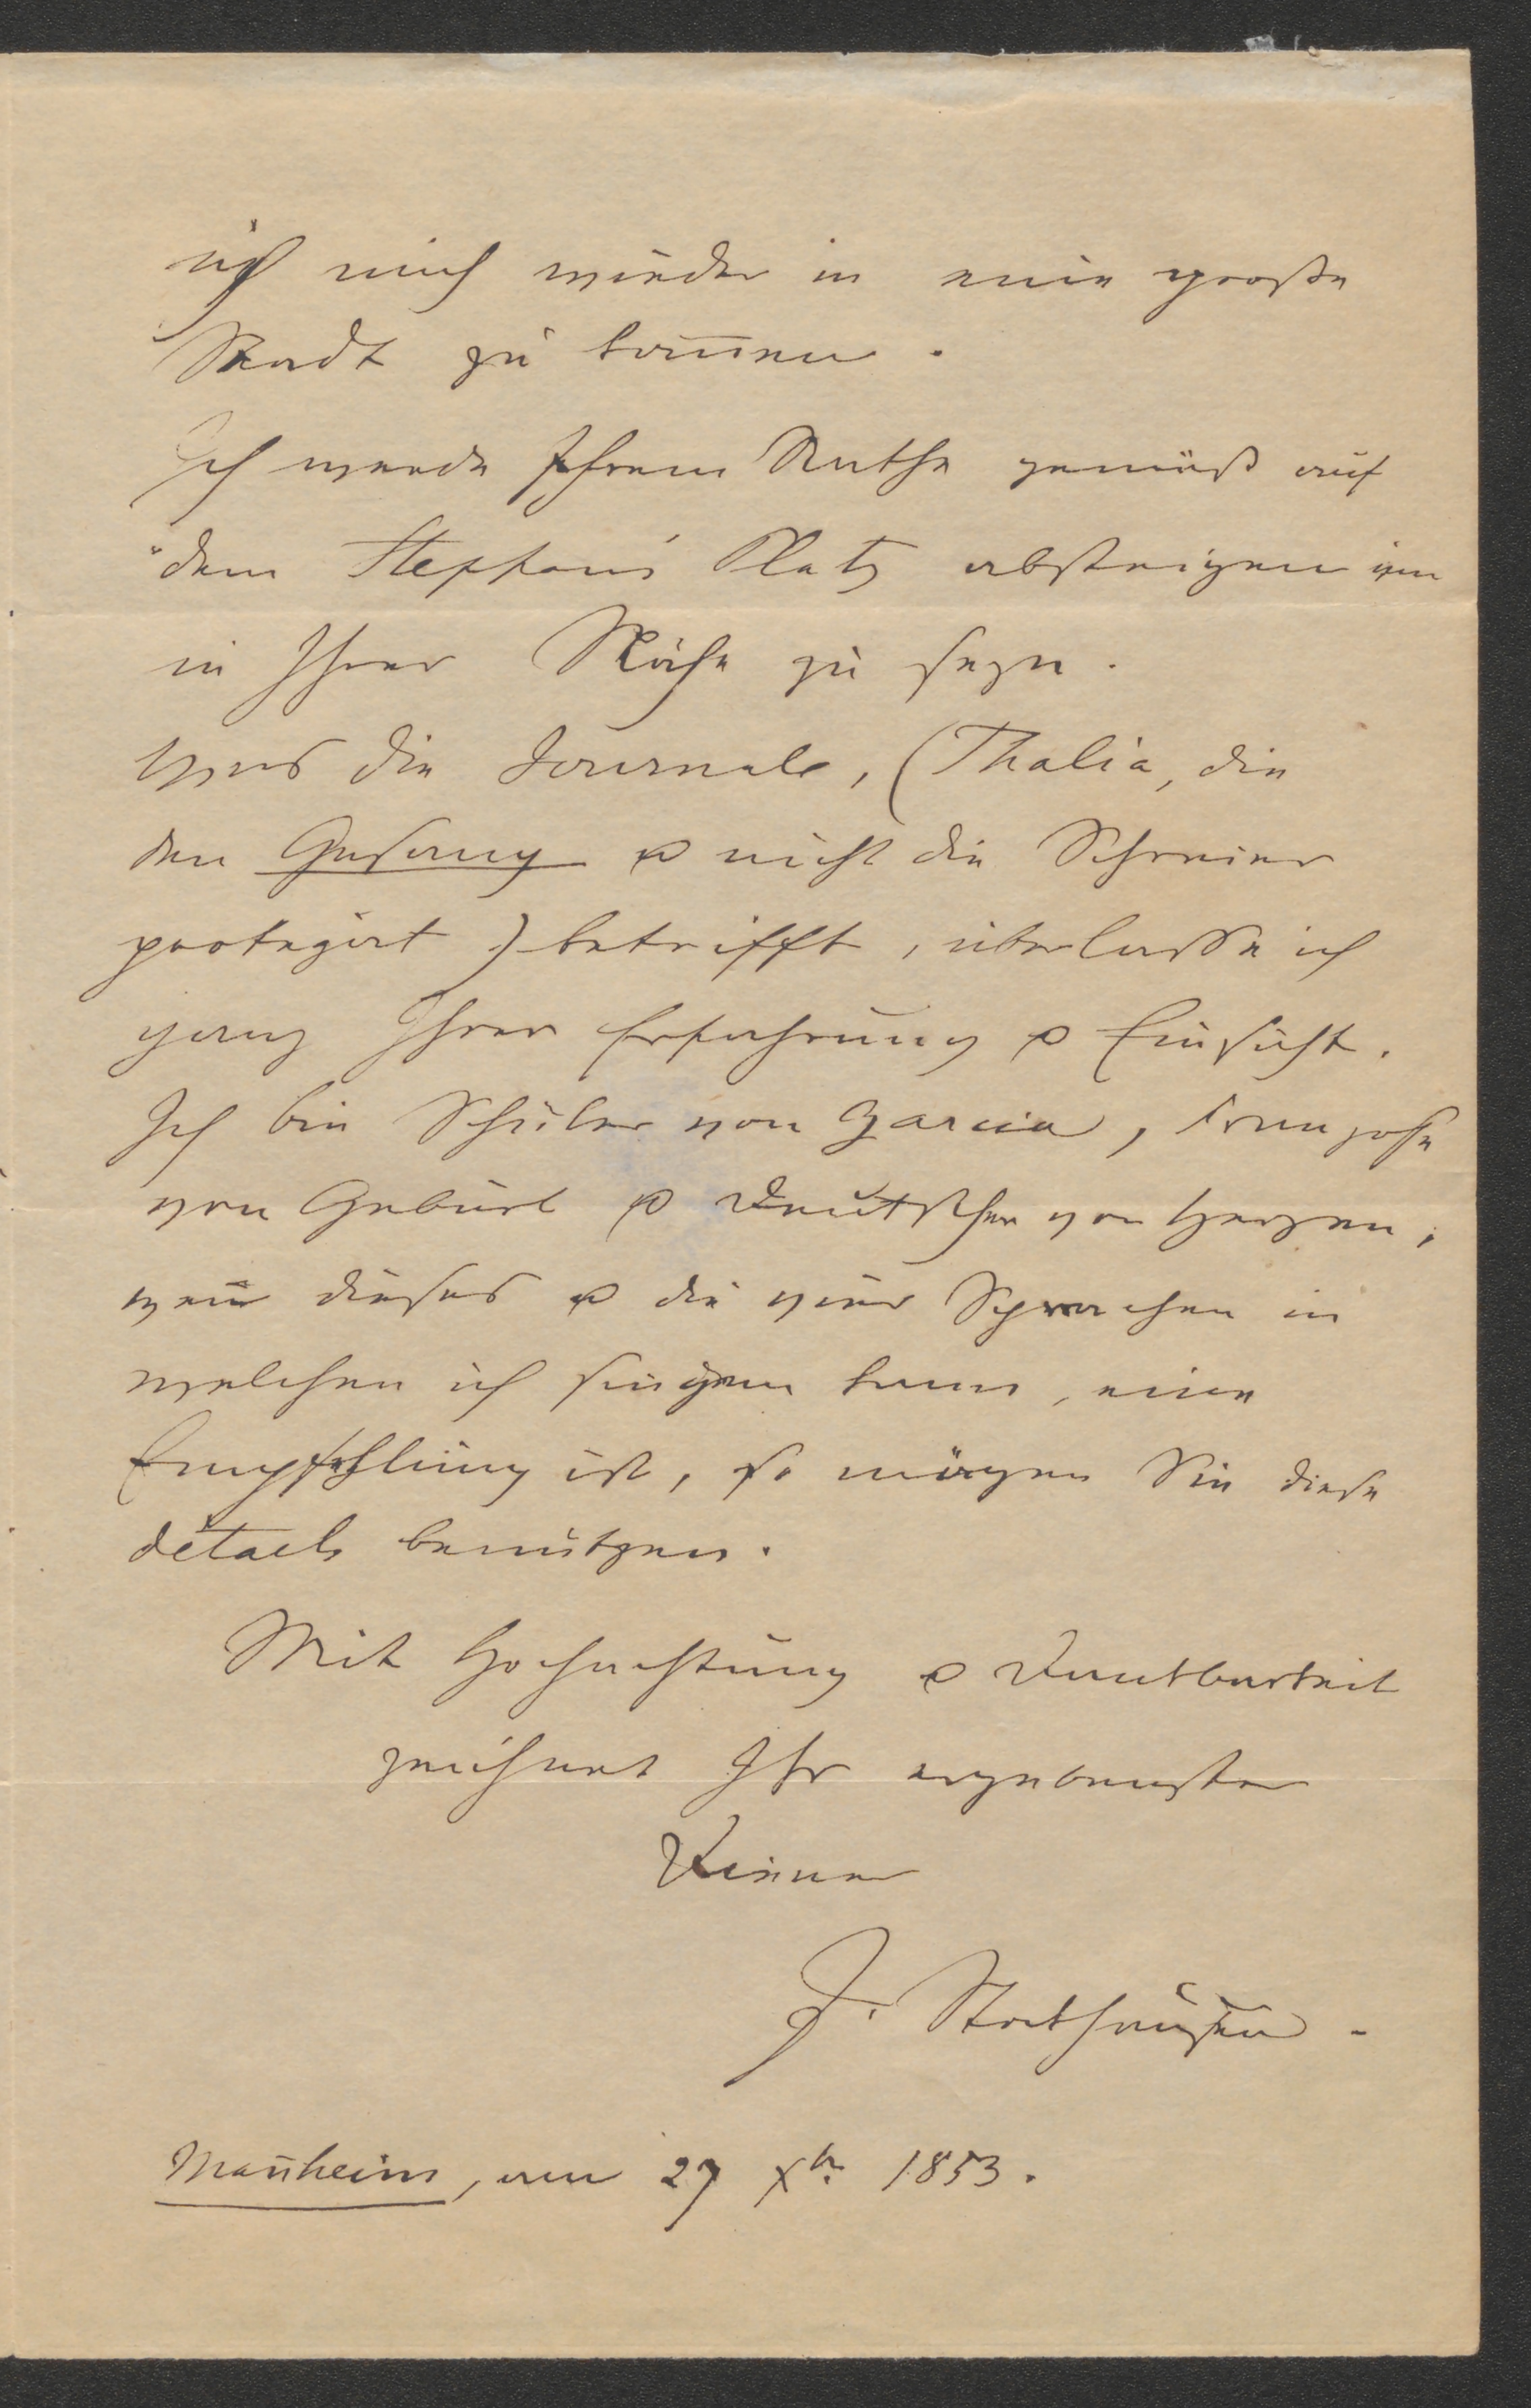 ich mich wieder in eine große
Stadt zu kom̄en.
Ich werde Ihrem Rathe gemäß auf
dem Stephans Platz absteigen um
in Ihrer Nähe zu seyn.
Was die Journale, (Thalia, die
den Gesang & nicht die Schreier
protegirt) betrifft, überlasse ich
ganz Ihrer Erfahrung & Einsicht.
Ich bin Schüler von Garcia, Franzose
von Geburt & Deutscher von Herzen,
wen̄ dieses & die vier Sprachen in
welchen ich singen kann, eine
Empfehlung ist, so mögen Sie diese
détails benützen.
Mit Hochachtung & Dankbarkeit
zeichnet Ihr ergebenster
Diener
J. Stockhausen.
Man̄heim, am 27 Xbr. 1853.